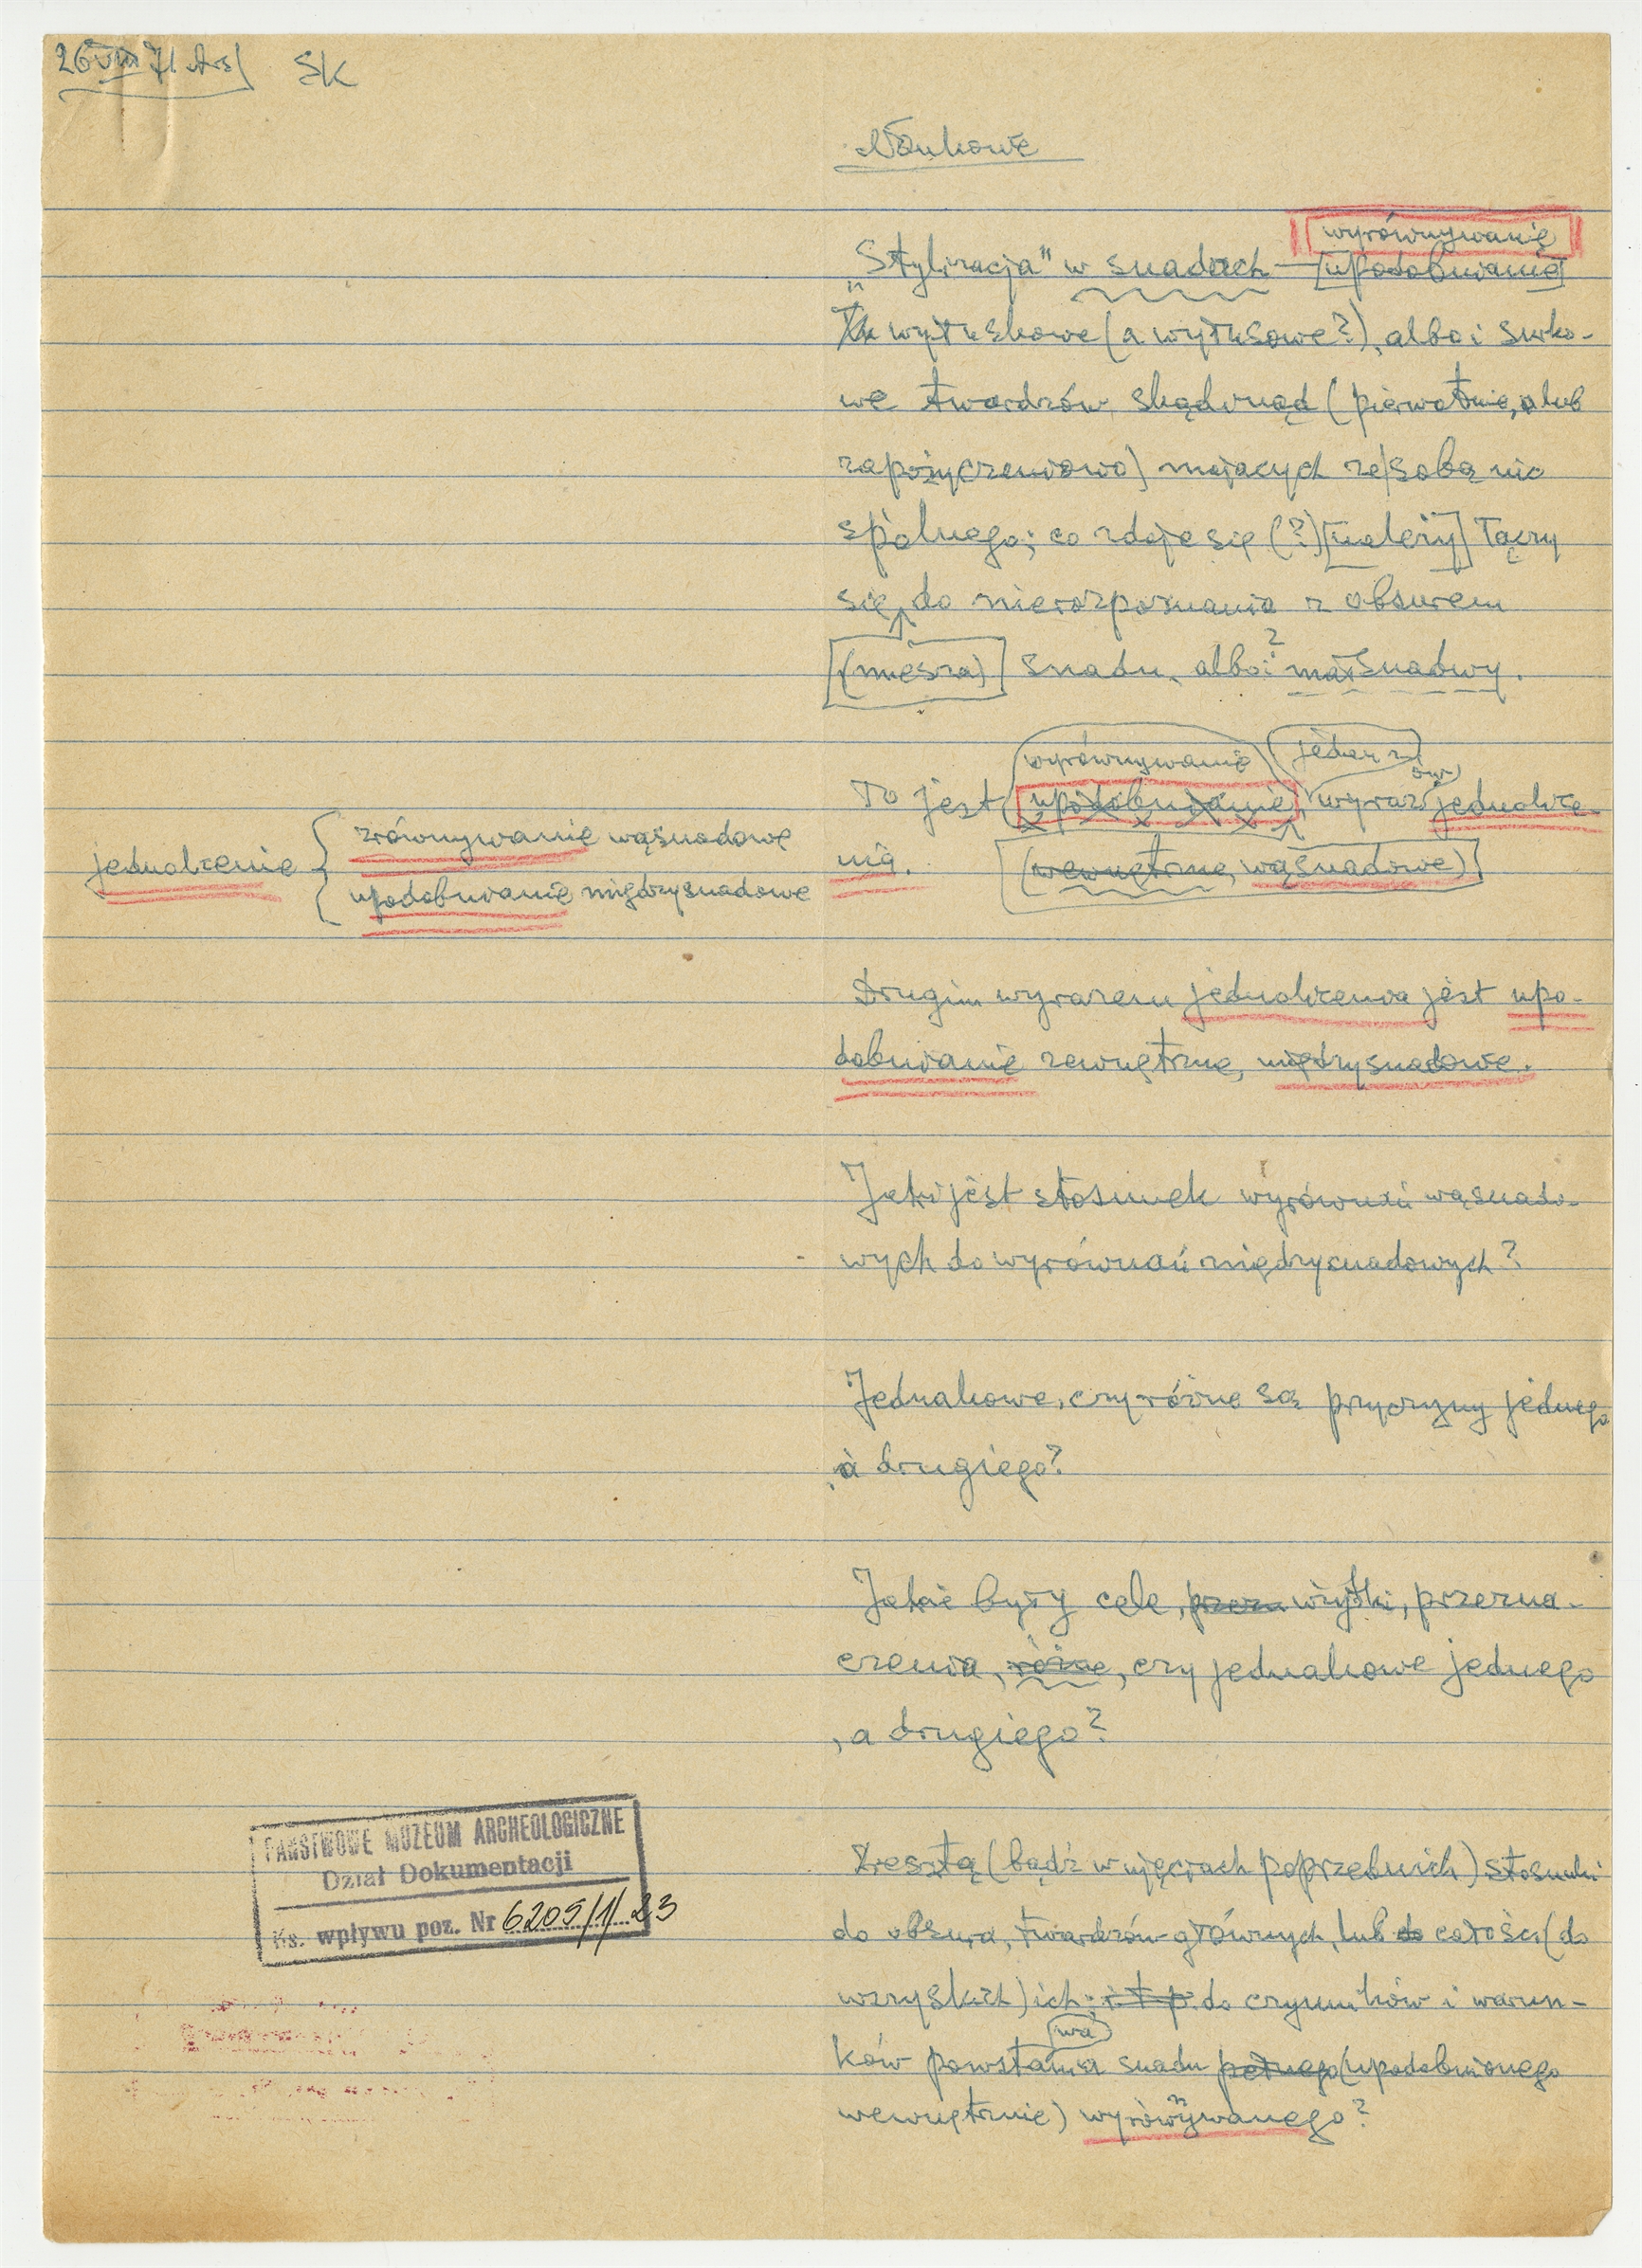 26 VIII 71 SK
Naukowe
wyrównywanie
„Stylizacja" w snadach — [upodobnianie]
wytuskowe (a wytusowe?), albo i surko-
we twardzów, skądinąd (pierwotnie, a lub
zapożyczeniowo) mających ze sobą nic
spólnego; co zdaje się (?) [należy] łączy
się do nierozpoznania z obsurem
(miesza) snadu, albo i? małsnadwy.
wyrównywanie jeden z ów
To jest upodobnianie, wyraz jednolice-
nia. (wewnętrzne, wąsnadowe)
jednolicenie { zrównywanie wąsnadowe
upodobnianie międzysnadowe
Drugim wyrazem jednolicenia jest upo-
dobnianie zewnętrzne, międzysnadowe.
Jaki jest stosunek wyrównań wąsnado-
wych do wyrównań międzysnadowych?
Jednakowe, czy różne są przyczyny jednego
a drugiego?
Jakie były cele, użytki, przezna-
czenia, różne, czy jednakowe jednego
, a drugiego?
Zresztą (bądź w ujęciach poprzednich) stosunki
do obsura, twardzów głównych, lub do całości (do
wszystkich) ich; i t p. do czynników i warun-
wa
ków powstania snadu pełnego (upodobnionego
wewnętrznie) wyrównywanego?
PAŃSTWOWE MUZEUM ARCHEOLOGICZNE
Dział Dokumentacji
Ks. wpływu poz. Nr 6205/1/23